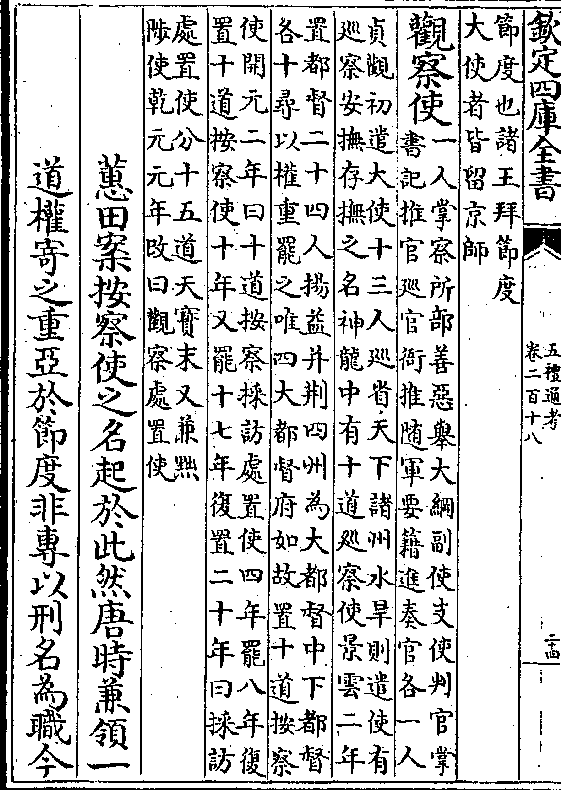 欽定四庫全書
五禮通考
卷二百十八
二十四
節度也諸王拜節度
大使者皆留京師
觀察使
一人掌察所部善惡舉大綱副使支使判官掌
書記推官巡官衙推随軍要籍進奏官各一人
貞觀初遣大使十三人巡省天下諸州水旱則遣使有
巡察安撫存撫之名神龍中有十道巡察使景雲二年
置都督二十四人揚益并荆四州為大都督中下都督
各十尋以權重罷之唯四大都督府如故置十道按察
使開元二年曰十道按察採訪處置使四年罷八年復
置十道按察使十年又罷十七年復置二十年曰採訪
處置使分十五道天寶末又兼黜
陟使乾元元年改曰觀察處置使
蕙田案按察使之名起於此然唐時兼領一
道權寄之重亞於節度非專以刑名為職今